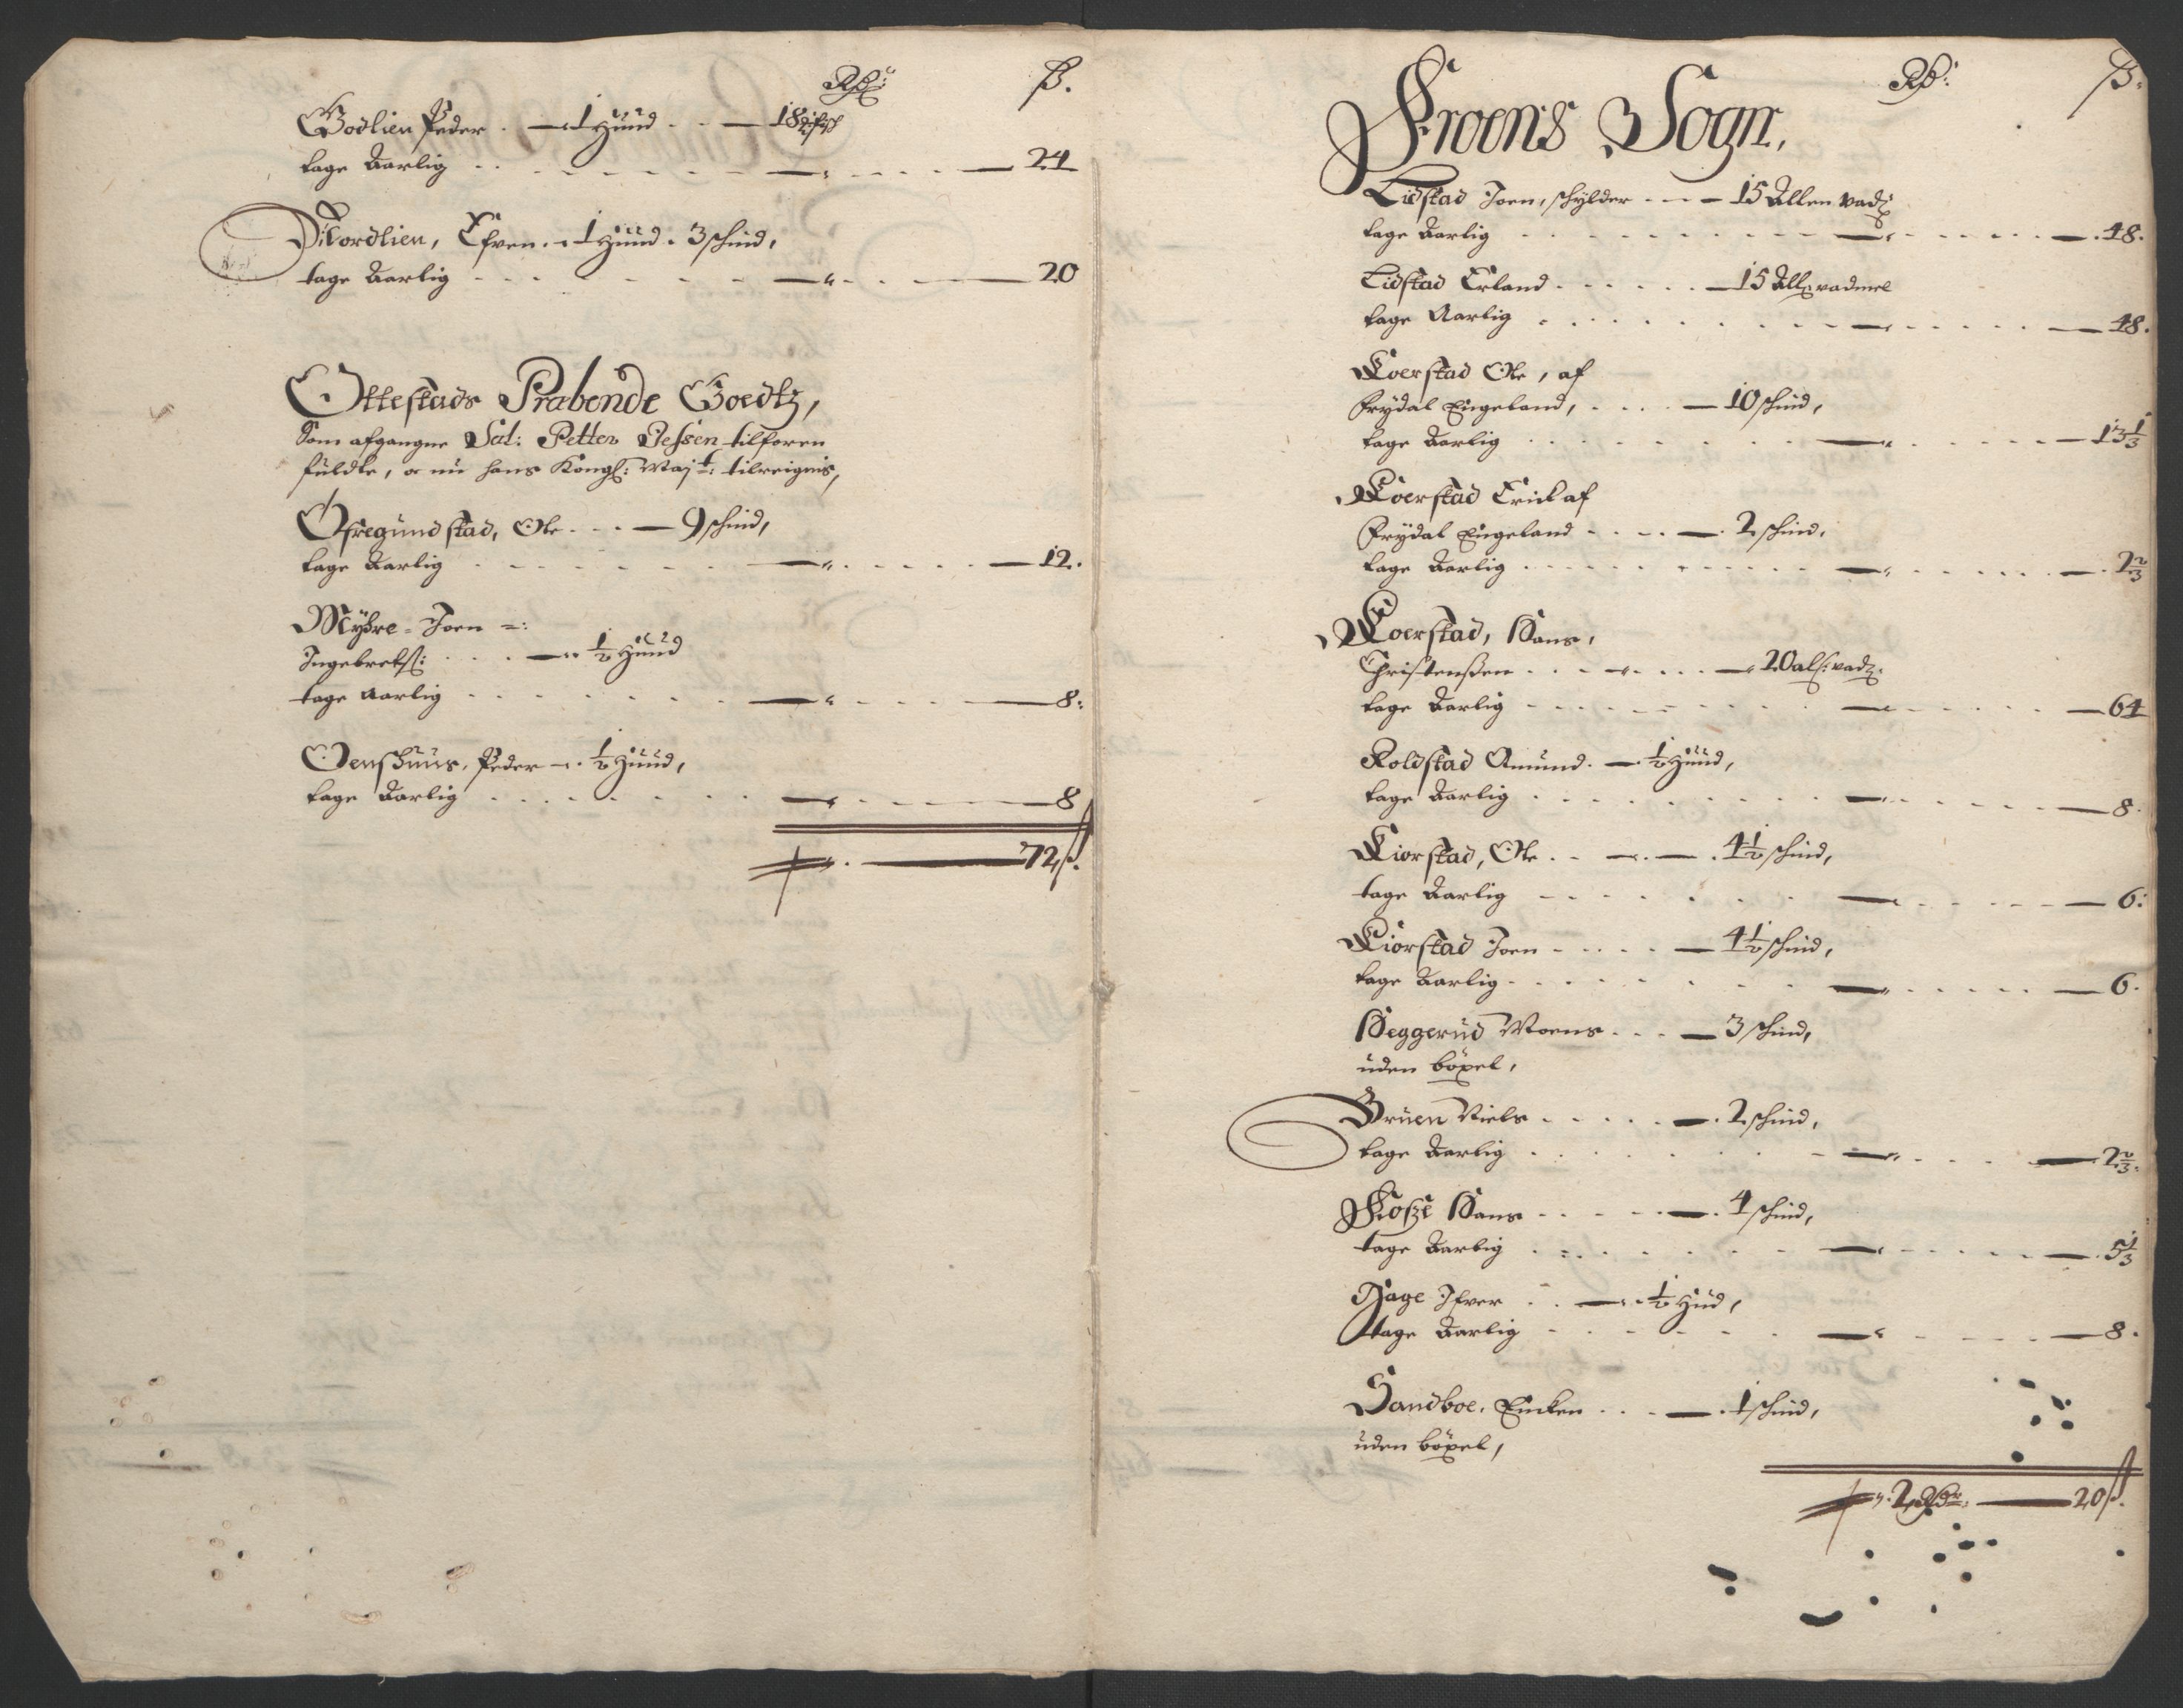 Rdr: ß.
Godlien Peder . — 1 Huud . . — 18
tage Aarlig . . . — " . . . — 24
Nordlien, Efven . — 1 Huud . 3 schind,
tage Aarlig . . . — " . . — 20
Ottestads Præbende Goedtz,
Som afgangne Sal: Petter Jessen tilforen
fuldte, oc nu hans Kongl: Maj:t: tilreignis,
Ofregundstad, Ole . . . — 9 schind,
tage Aarlig . . . — " . . . — 12.
Myhre - Joen =:
Ingebretß: . . . — " ½ Huud
tage Aarlig . . . — " . . . — 8:
Oenshuus, Peder — . ½ Huud,
tage Aarlig . . . — " . . . — 8
— " . — 72 ß.
Rdr: ß.
Froens Sogn,
Lidstad Joen, schylder . . — 15 Allen vad:
tage Aarlig . . . — " . . . — 48.
Lidstad Erland . . . — 15 All: vadmel
tage Aarlig . . . — " . . . — 48.
Koerstad Ole, af
Frydal Engeland, . . . — 10 schind,
tage Aarlig . . . — " . . . — 13⅓
Koerstad Erick af
Frydal Engeland . . . — . 2 schind,
tage Aarlig . . . — " . . . — . 2⅔
Koerstad, Hans,
Christenßen . . . — 20 al: vad:
tage Aarlig . . . — " . . . — 64
Roldstad Amund . — . ½ Huud,
tage Aarlig . . . — " . . . — 8.
Kiorstad, Ole . . — . 4½ schind,
tage Aarlig . . . — " . . . — 6:
Kiorstad Joen . . . — 4½ schind,
tage Aarlig . . . — " . . . — 6.
Heggerud Moens . . . — 3 schind,
uden böxel,
Bruen Niels . . . — . 2 schind,
tage Aarlig . . . — " . . . — 2⅔.
Floße Hans . . . — . 4 schind,
tage Aarlig . . . — " . . . — . 5⅓
Hage Ifver . . — . ½ Hud,
tage Aarlig . . . — " . . . — 8.
Sandboe, Encken . . . — . 1 schind,
uden böxel,
— " . 2 Rdr: — 20 ß.